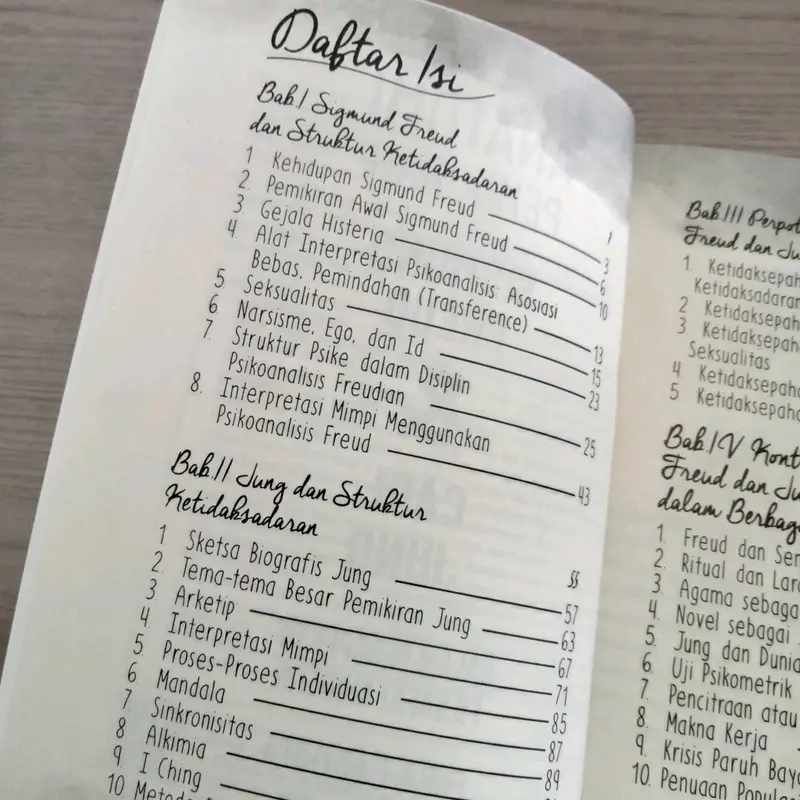 Daftar Isi
Bab.I Sigmund Freud
dan Struktur Ketidaksadaran
1
1 Kehidupan Sigmund Freud 3
2. Pemikiran Awal Sigmund Freud 6
3. Gejala Histeria 10
4. Alat Interpretasi Psikoanalisis: Asosiasi
Bebas, Pemindahan (Transference) 13
5. Seksualitas 15
6. Narsisme, Ego, dan Id 23
7. Struktur Psike dalam Disiplin
Psikoanalisis Freudian 25
8. Interpretasi Mimpi Menggunakan
Psikoanalisis Freud 43
Bab.II Jung dan Struktur
Ketidaksadaran
55
1 Sketsa Biografis Jung 57
2. Tema-tema Besar Pemikiran Jung 63
3 Arketip 67
4. Interpretasi Mimpi 71
5. Proses-Proses Individuasi 85
6 Mandala 87
7. Sinkronisitas 89
8 Alkimia
9. I Ching
10
Bab.III
Freud dan
1
Ketidaksadaran
2
3.
Seksualitas
4
5
Bab.IV
Freud dan
dalam
1. Freud dan
2. Ritual dan
3. Agama
4. Novel sebagai
5. Jung dan
6 Uji Psikometrik
7. Pencitraan atau
8. Makna Kerja
9. Krisis Paruh
10. Penuaan